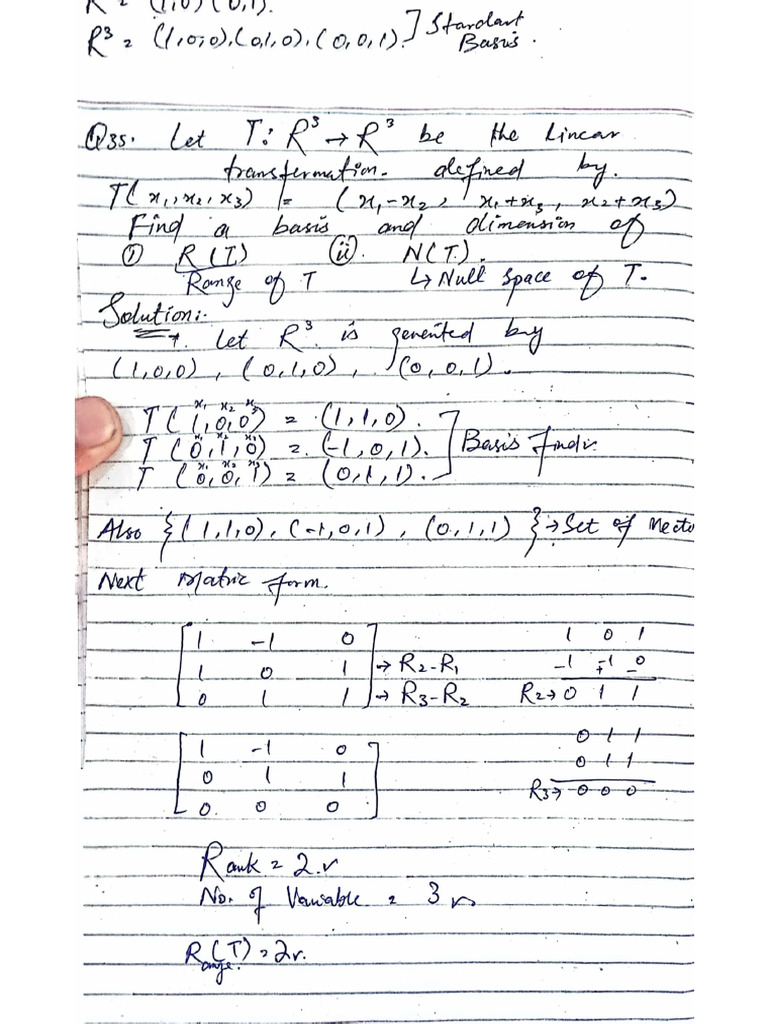 R² = (1,0) (0,1).
R³ = (1,0,0), (0,1,0), (0,0,1).] Standart Basis.
Q35. Let T: R³ → R³ be the Linear
transformation defined by.
T(x₁, x₂, x₃) = (x₁-x₂, x₁+x₃, x₂+x₃)
Find a basis and dimension of
(i) R(T) (ii). N(T).
Range of T ↳ Null space of T.
Solution:.
Let R³ is genented by
(1,0,0), (0,1,0), (0,0,1).
x₁ x₂ x₃
T(1,0,0) = (1,1,0).
x₁ x₂ x₃
T(0,1,0) = (-1,0,1).] Basis Findi.
x₁ x₂ x₃
T(0,0,1) = (0,1,1).
Also {(1,1,0), (-1,0,1), (0,1,1)} → Set of Vecto
Next Matric form.
1 -1 0
1 0 1 → R₂-R₁
0 1 1 → R₃-R₂
1 0 1
-1 -1 -0
+
R₂→ 0 1 1
1 -1 0
0 1 1
0 0 0
0 1 1
0 1 1
R₃→ 0 0 0
Rank = 2.
No. of Variable = 3
R(T) = 2
ange.